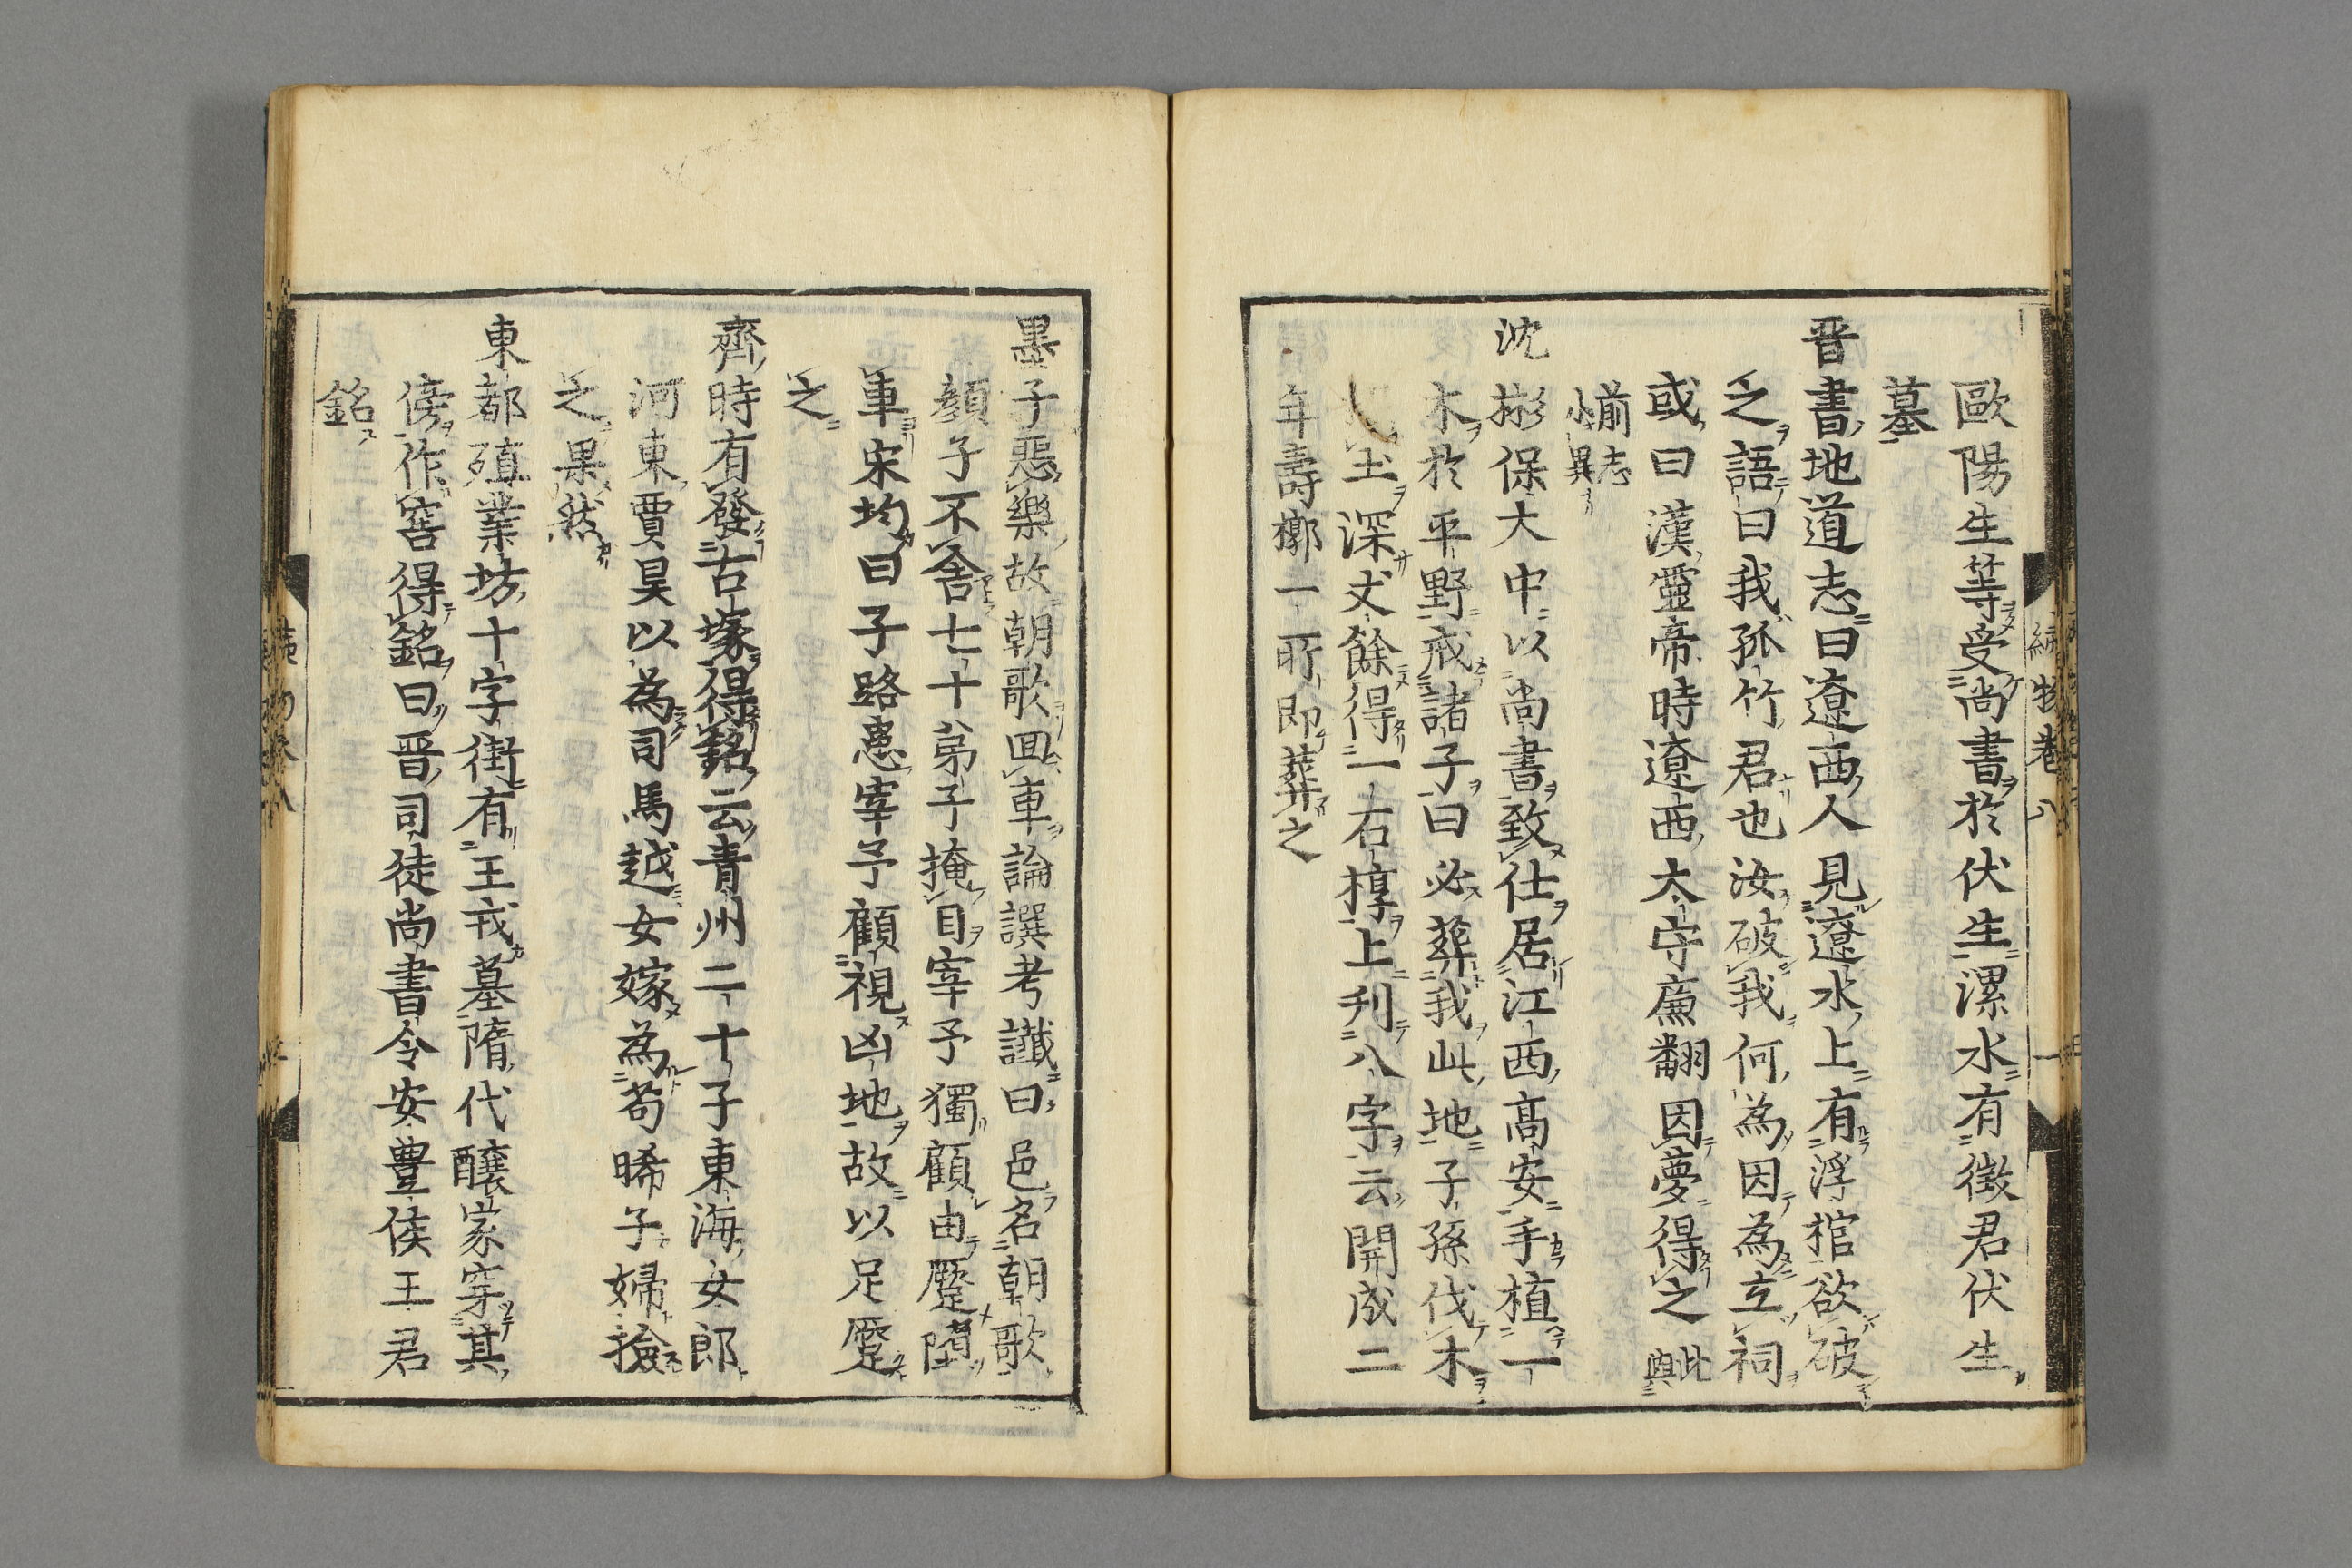 歐陽生等受尚書於伏生漯水有徴君伏生
墓
晋書地道志曰遼西人見遼水上有浮棺欲破
之語曰我孤竹君也汝破我何為因為立祠
或曰漢靈帝時遼西太守廉翻因夢得之此與
前志小異
沈彬保大中以尚書致仕居江西髙安手植一
木於平野戒諸子曰必葬我此地子孫伐木
土深丈餘得一石椁上刊八字云開成二
年壽槨一所即葬之
續物卷八
墨子惡樂故朝歌囬車論譔考讖曰邑名朝歌
顔子不舍七十弟子掩目宰予獨顧由蹙墮
車宋均曰子路患宰予顧視凶地故以足蹙
之
齊時有發古塚得銘云青州二十子東海女郎
河東賈昊以為司馬越女嫁為苟晞子婦撿
之果然
東都殖業坊十字街有王戎墓隋代釀家穿其
傍作窖得銘曰晋司徒尚書令安豊侯王君
銘